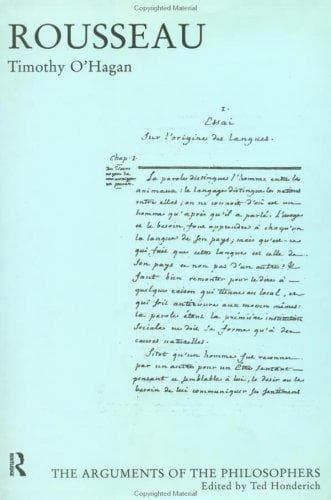 Copyrighted Material
ROUSSEAU
Timothy O'Hagan
1.
Essai
Sur l'origine des langues.
Chap. I.
La parole distingue l'homme entre les
animaux: le langage distingue les nations
entre elles; on ne connoit d'où est un
homme qu'après qu'il a parlé. L'usage
et le besoin, font apprendre à chacun
la langue de son pays; mais qu'est-ce
qui fait que cette langue est celle de
son pays et non pas d'un autre? Il
faut bien remonter pour le dire à
quelque raison qui tienne au local, et
qui soit antérieure aux moeurs mêmes:
la parole étant la première institution
sociale ne doit sa forme qu'à des
causes naturelles.
Sitot qu'un homme fut reconnu
par un autre pour un Etre sentant
pensant et semblable à lui, le desir ou le
besoin de lui communiquer ses sentimens
R
THE ARGUMENTS OF THE PHILOSOPHERS
Edited by Ted Honderich
Copyrighted Material